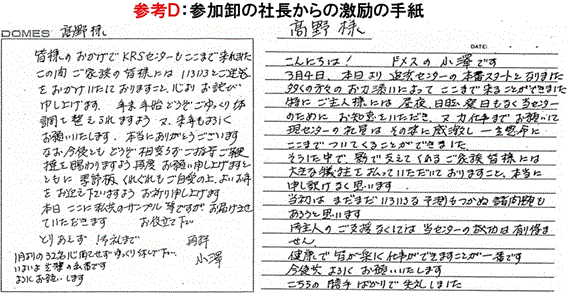 参考D：参加卸の社長からの激励の手紙
DOMES 高野様
皆様のおかげでKRSセンターもここまで来れました
この間ご家族の皆様には いろいろとご迷惑
をおかけいたしておりますこと、心よりお詫び
申し上げます。年末年始どうぞごゆっくり体
調を整えられますよう 又、来年もよろしく
お願いいたします。本当にありがとうございます
なお今後とも どうぞ相変らずご指導ご鞭
撻を賜わりますよう再度お願い申し上げますと
ともに 寒さ くれぐれもご自愛の上、よいお年
をお迎え下さいますよう お祈り申し上げます
本日ここに私共のサンプル 等ですがお届けさせ
ていただきます お役立て下
とりあえず 御礼まで 再拝
1月よりの32名に向けてゆっくり休んで下
小澤
よろしくお願いします
高野様
DATE:
こんにちは！ ドメスの小澤です
3月4日、本日より 迫センターの本番スタートとなりました
多くの方々のお力添いによって ここまで来ることができました
特にご主人様には 昼夜、日曜、祭日もなく当センター
のために お知恵をいただき、又力仕事までお願いして
現センターの社員は その姿に感激し 一生懸命に
ここまでついてくることができました
そういった中で 影で支えてくれる ご家族皆様には
大きな犠牲を払っていただいておりますこと、本当に
申し訳なく思います
当初は まだまだ いろいろ予測もつかぬ諸問題も
あろうと思います
ご主人のご支援なくしては 当センターの成功は有り得ま
せん
健康で皆が楽に仕事ができますことが一番です
今後共 よろしく お願いいたします
こちらの勝手ばかりで失礼しました